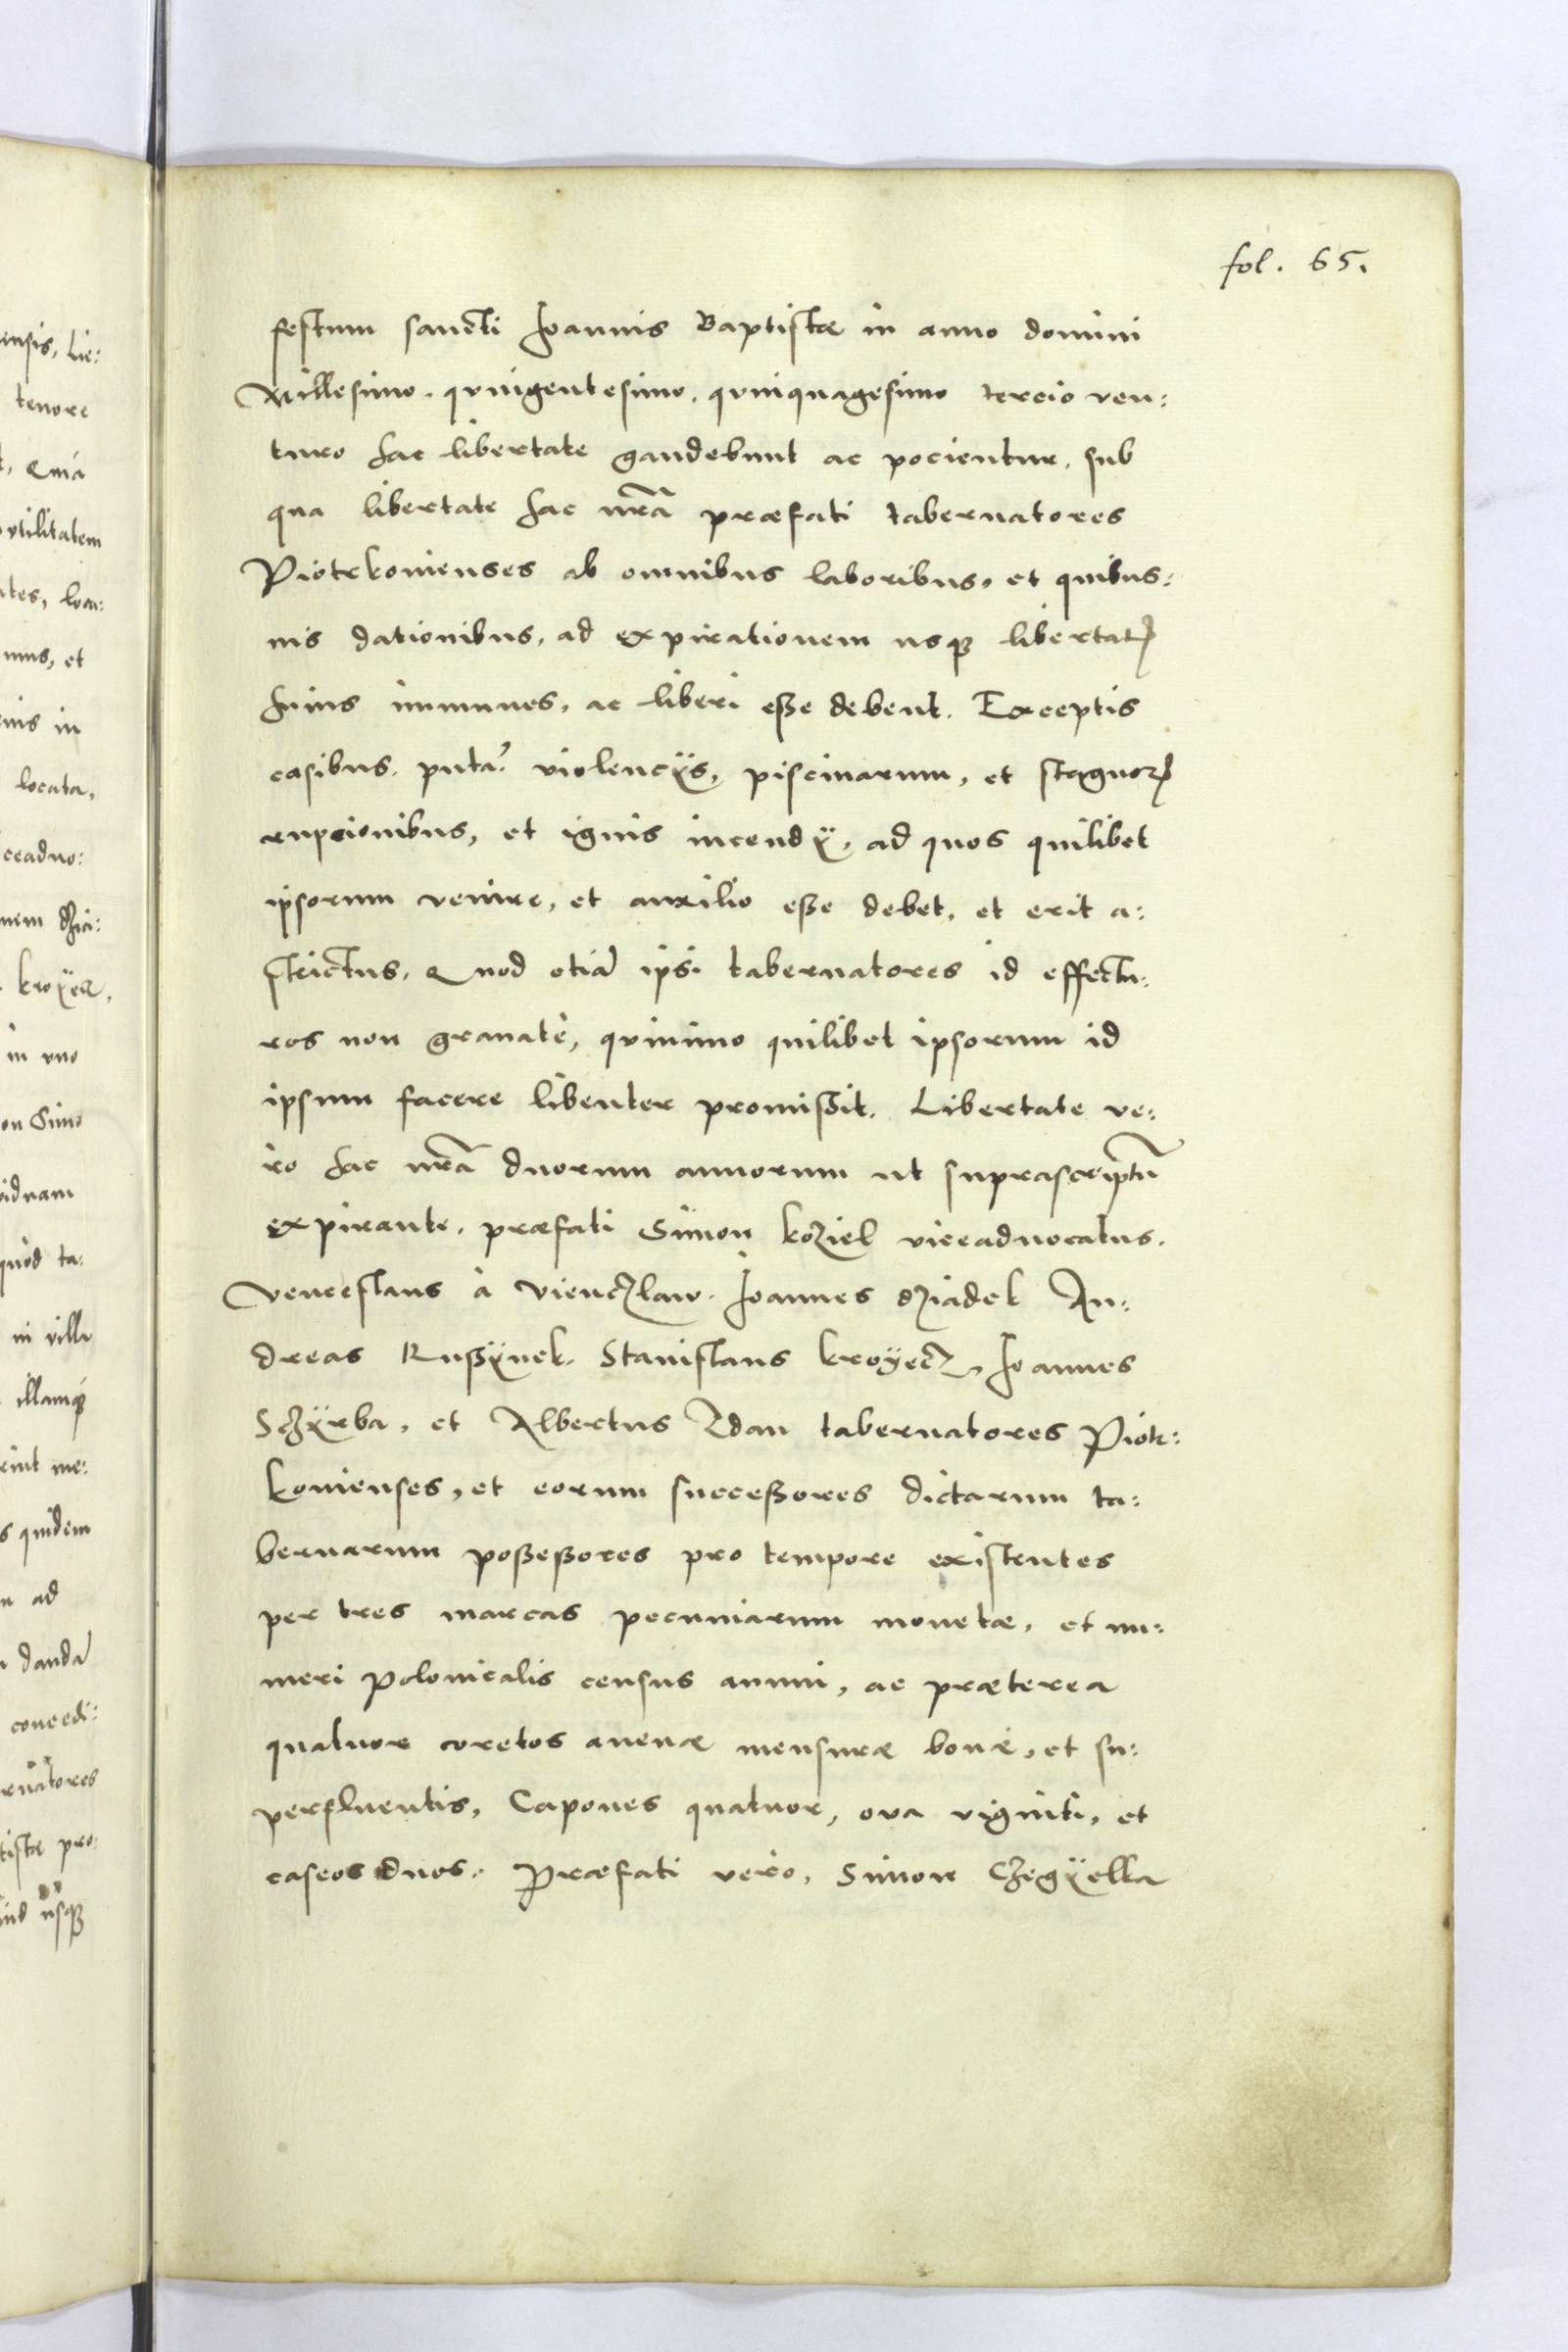 fol. 65.
festum sancti Ioannis Baptistæ in anno domini
Millesimo. quingentesimo. quinquagesimo tercio ven:
turo hac libertate gaudebunt ac pocientur, sub
qua libertate hac nr̃a præfati tabernatores
Piotrkouienses ab omnibus laboribus, et quibus:
uis dationibus, ad expirationem usqȝ libertatꝭ
huius immunes, ac liberi eße debent. Exceptis
casibus. puta. violencÿs, piscinarum, et stagnorꝝ
rupcionibus, et ignis incendÿ, ad quos quilibet
ipsorum venire, et auxilio eße debet, et erit a:
strictus, Quod etiã ipsi tabernatores id effectu:
ros non grauatè, quinimo quilibet ipsorum id
ipsum facere libenter promißit. Libertate ve:
ro hac nr̃a duorum annorum ut suprascriptũ
expirante. præfati Simon koziel viceaduocatus.
Venceslaus à Vienczlaw. Ioannes dziadek An:
dreas Rußÿnek. Stanislaus kroÿecz, Ioannes
Sczÿrba, et Albertus Zdan tabernatores Piotr:
kouienses, et eorum succeßores dictarum ta:
bernarum poßeßores pro tempore existentes
per tres marcas pecuniarum monetæ, et nu:
meri Polonicalis census annui, ac præterea
quatuor coretos auenæ mensuræ bonæ, et su:
perfluentis, Capones quatuor, oua viginti, et
caseos duos. Præfati vero, Simon Czegÿella
ensis, Lie:
tenore
Quia
vtilitatem
mus, et
locata,
kroÿecz,
in vno
viduam
quod ta:
in villa
illamqȝ
quidem
ad
dandã
concedi:
rnatores
tistæ pro:
usqȝ